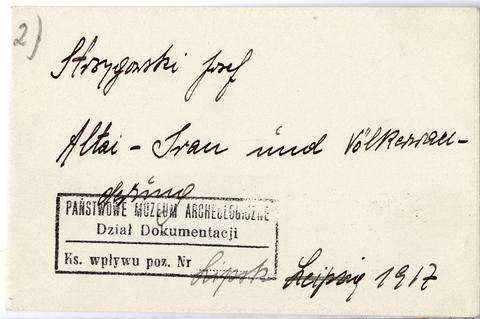 2)
Strzygowski Josef
Altai - Iran und Völkerwan-
derung
PAŃSTWOWE MUZEUM ARCHEOLOGICZNE
Dział Dokumentacji
Ks. wpływu poz. Nr
Lipsk Leipzig 1917